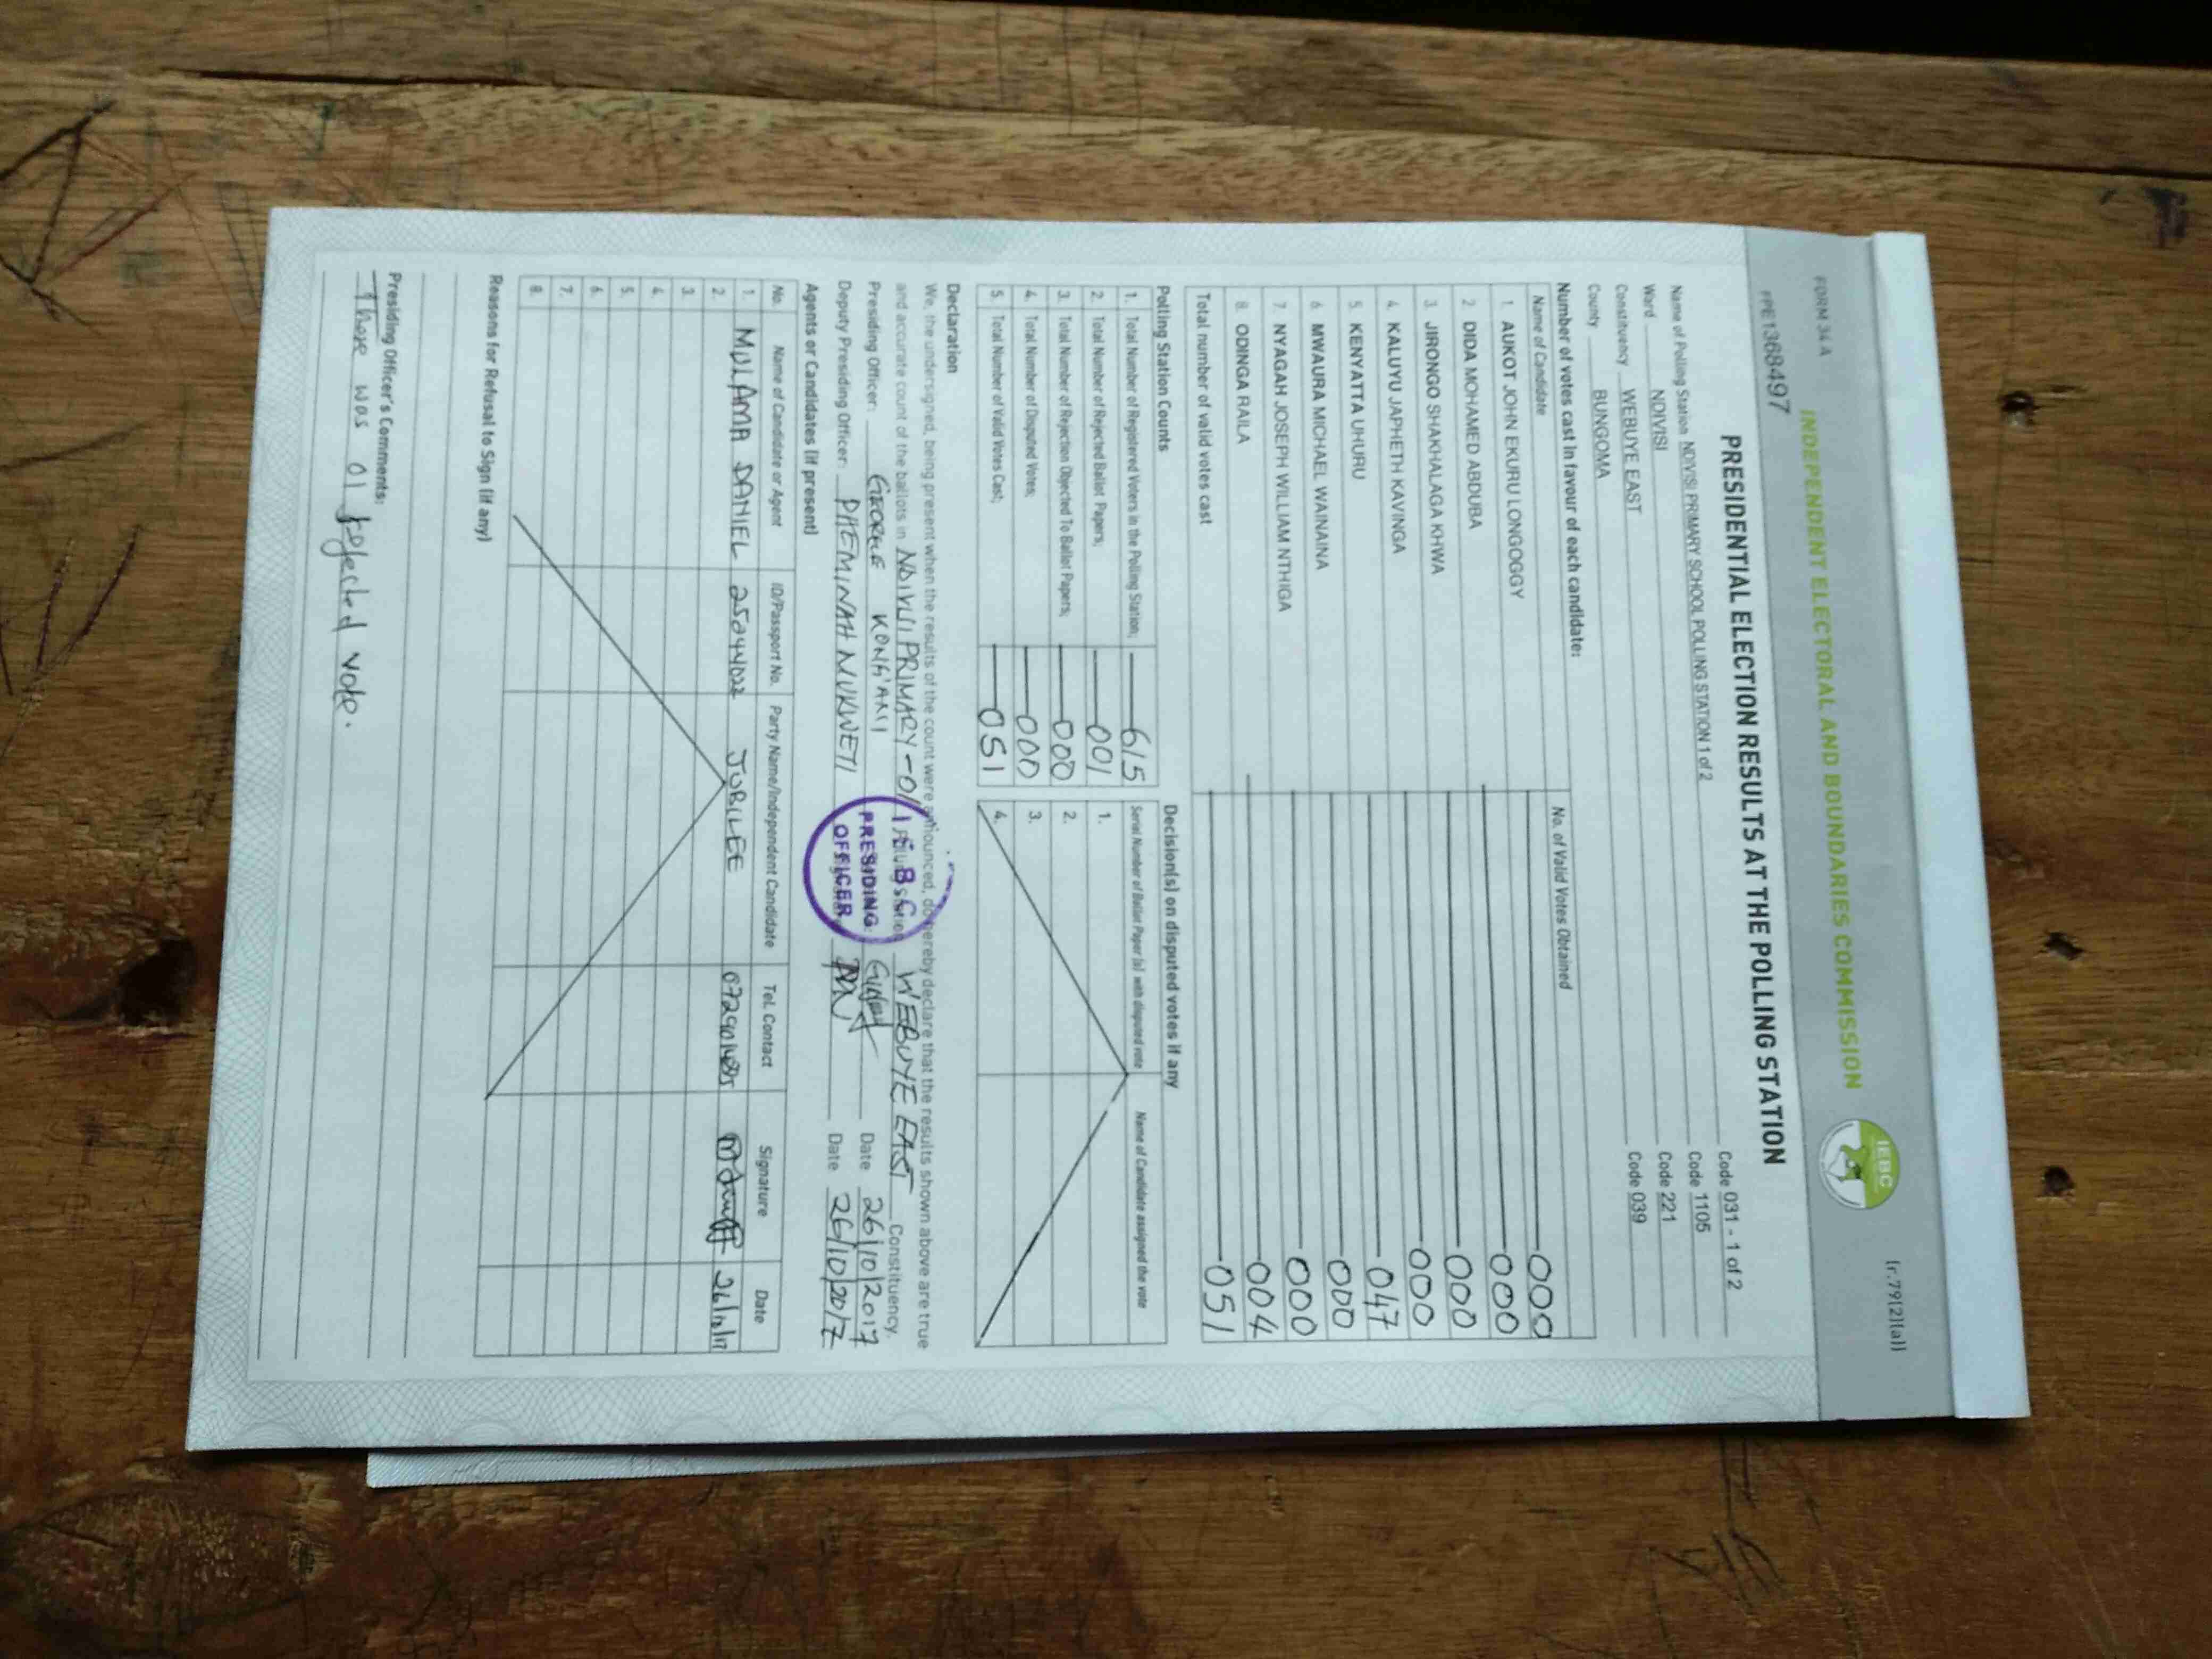 FORM 34 A
[r.79(2)(a)]
INDEPENDENT ELECTORAL AND BOUNDARIES COMMISSION
IEBC
PPE1368497
PRESIDENTIAL ELECTION RESULTS AT THE POLLING STATION
Name of Polling Station NDIVISI PRIMARY SCHOOL POLLING STATION 1 of 2 Code 031 - 1 of 2
Ward NDIVISI Code 1105
Constituency WEBUYE EAST Code 221
County BUNGOMA Code 039
Number of votes cast in favour of each candidate:
Name of Candidate No. of Valid Votes Obtained
1. AUKOT JOHN EKURU LONGOGGY 000
2 DIDA MOHAMED ABDUBA 000
3. JIRONGO SHAKHALAGA KHWA 000
4. KALUYU JAPHETH KAVINGA 000
5. KENYATTA UHURU 047
6 MWAURA MICHAEL WAINAINA 000
7. NYAGAH JOSEPH WILLIAM NTHIGA 000
8. ODINGA RAILA 004
Total number of valid votes cast 051
Polling Station Counts
1. Total Number of Registered Voters in the Polling Station; 615
2. Total Number of Rejected Ballot Papers; 001
3. Total Number of Rejection Objected To Ballot Papers; 000
4. Total Number of Disputed Votes; 000
5. Total Number of Valid Votes Cast; 051
Decision(s) on disputed votes if any
Serial Number of Ballot Paper (s) with disputed vote Name of Candidate assigned the vote
1.
2.
3.
4.
Declaration
We, the undersigned, being present when the results of the count were announced, do hereby declare that the results shown above are true
and accurate count of the ballots in NDIVISI PRIMARY-01 Polling station WEBUYE EAST Constituency.
Presiding Officer: GEORGE Date 26/10/2017
Deputy Presiding Officer: PHEMINAH MUKWETI Date 26/10/2017
IEBC
PRESIDING
OFFICER
Agents or Candidates (if present)
No. Name of Candidate or Agent ID/Passport No. Party Name/Independent Candidate Tel. Contact Signature Date
1. MULAMA DANIEL JUBILEE 26/10/17
2.
3.
4.
5.
6.
7.
8.
Reasons for Refusal to Sign (if any)
Presiding Officer's Comments:
There was 01 rejected vote.